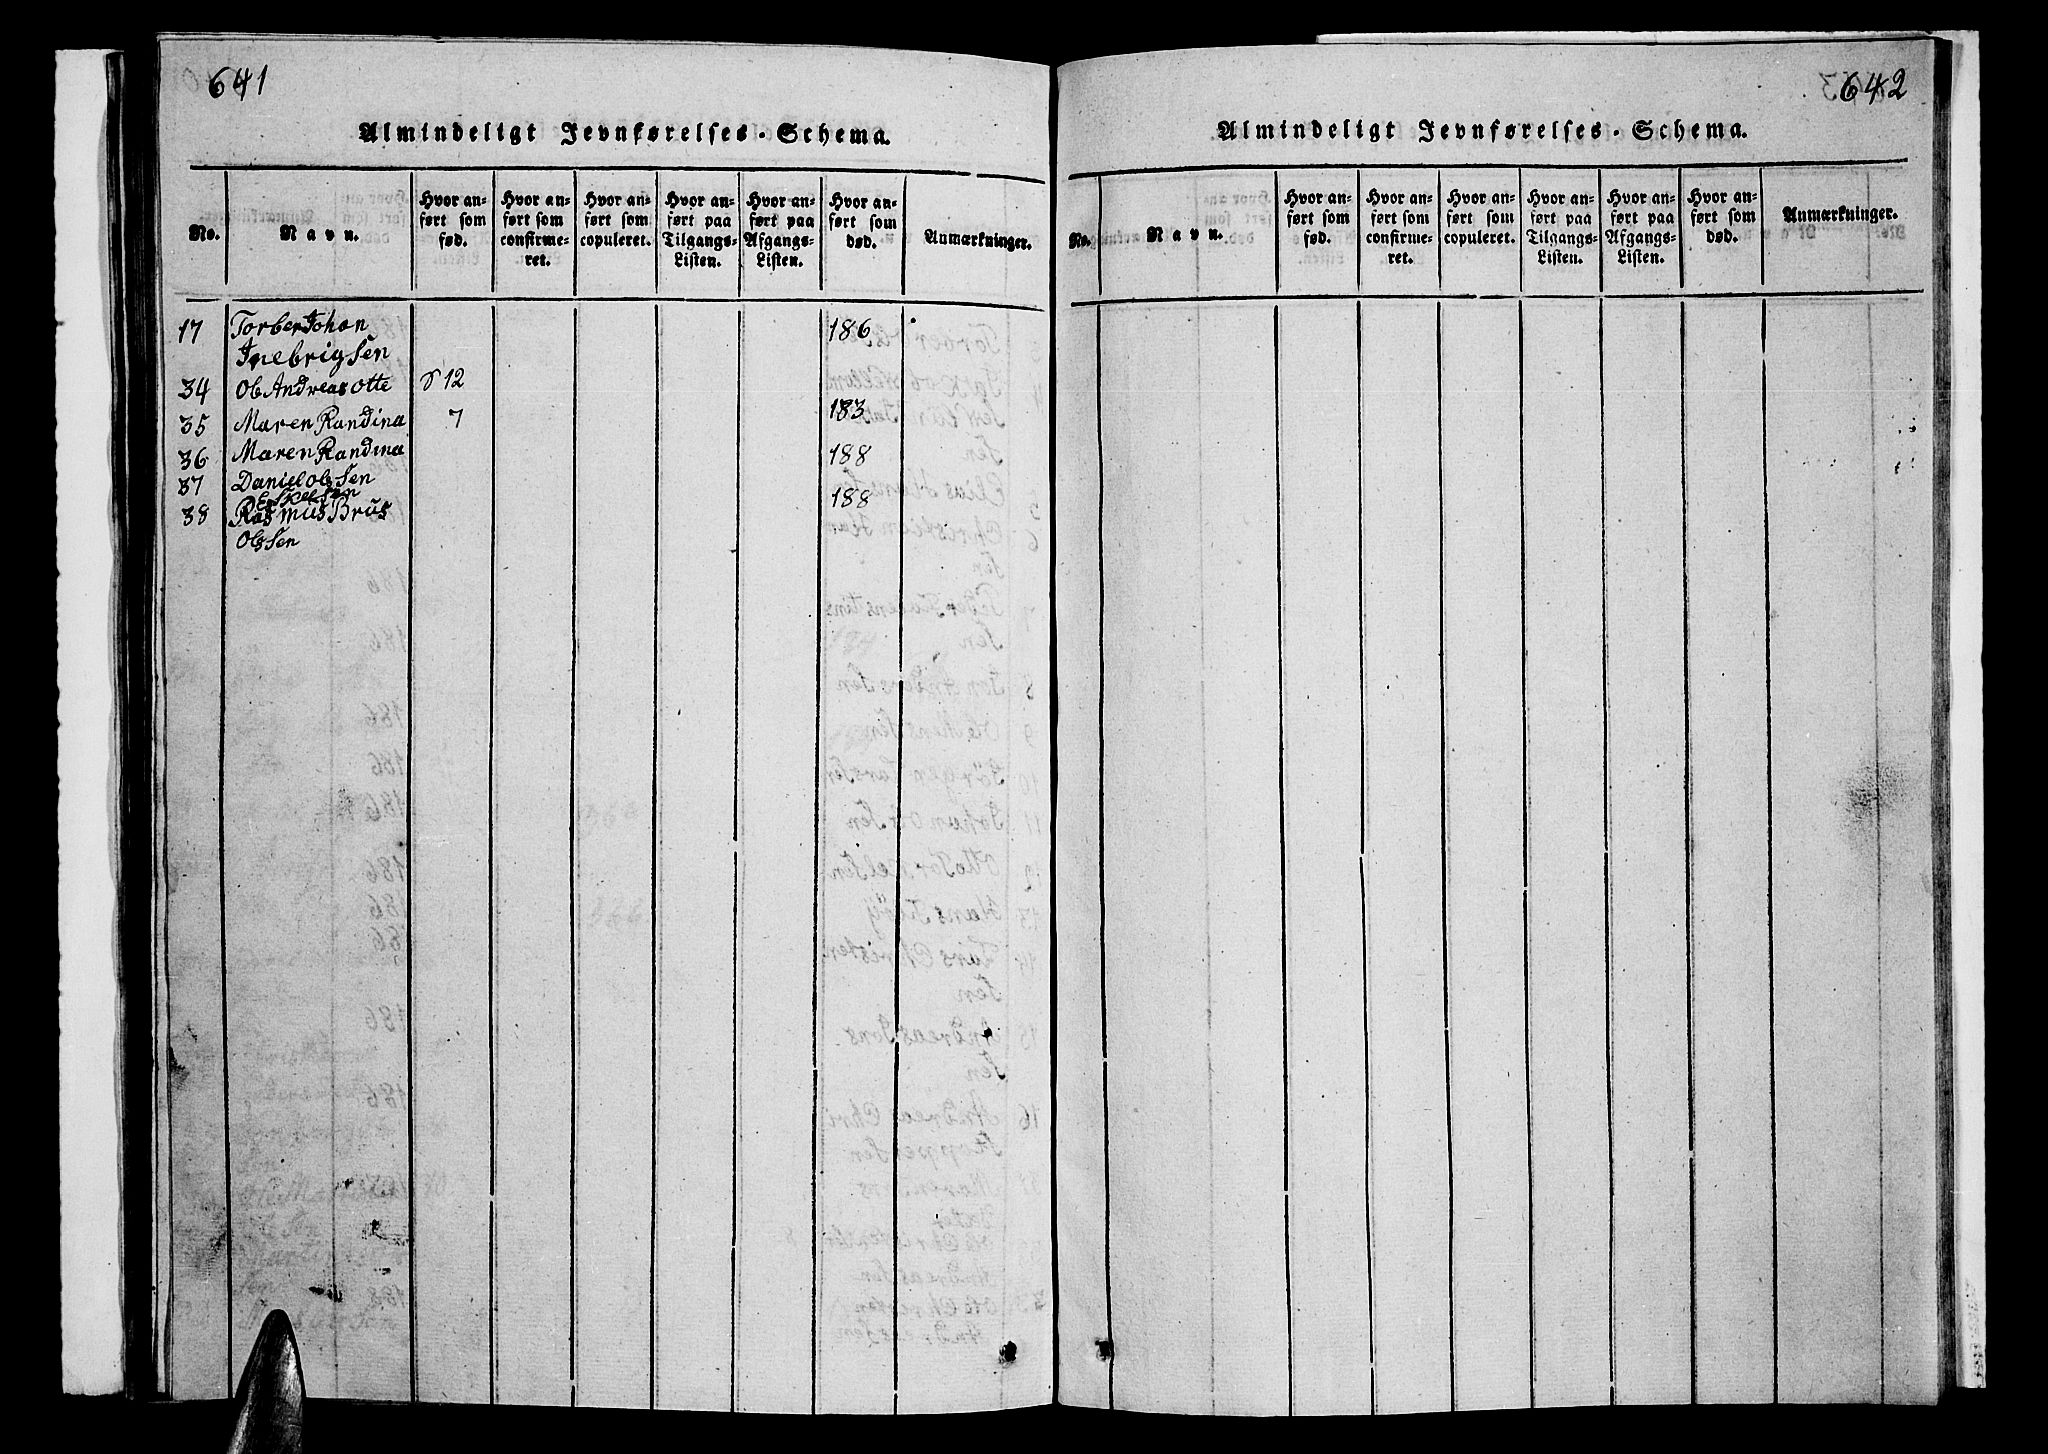 641
Almindeligt Jevnførelses-Schema.
No.
Navn.
Hvor an-
ført som
fød.
Hvor an-
ført som
confirme-
ret.
Hvor an-
ført som
copuleret.
Hvor an-
ført paa
Tilgangs-
Listen.
Hvor an-
ført paa
Afgangs-
Listen.
Hvor an-
ført som
død.
Anmærkninger.
17 Torber Johan 186
Inebrigsen
34 Ol Andreas Otte 12
35 Maren Randina 7 183
36 Maren Randina 188
37 Daniel Olsen
Eskelsen 188
38 Rasmus Brus
Olsen
642
Almindeligt Jevnførelses-Schema.
No.
Navn.
Hvor an-
ført som
fød.
Hvor an-
ført som
confirme-
ret.
Hvor an-
ført som
copuleret.
Hvor an-
ført paa
Tilgangs-
Listen.
Hvor an-
ført paa
Afgangs-
Listen.
Hvor an-
ført som
død.
Anmærkninger.